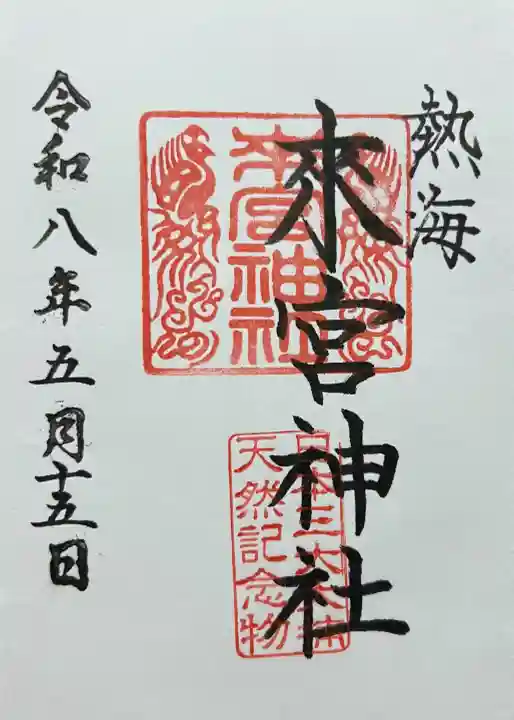 熱海
來宮神社
來宮神社
日本三大
天然記念物
令和八年五月十五日